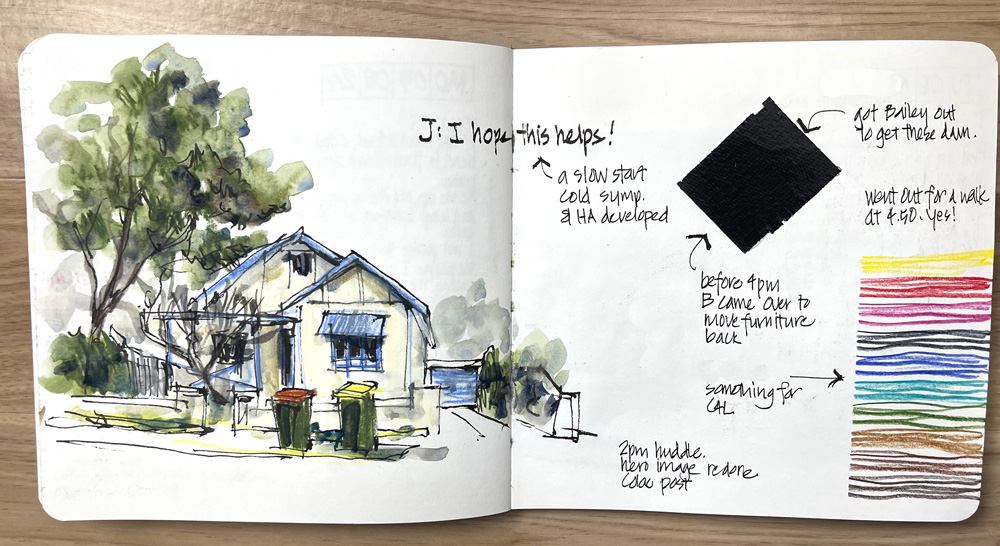 J: I hope this helps!
a slow start
cold symp.
& HA developed
got Bailey out
to get these dam.
went out for a walk
at 4.50. yes!
before 4pm
B came over to
move furniture
back
something for
CAL
2pm huddle.
hero image redone
Colac post